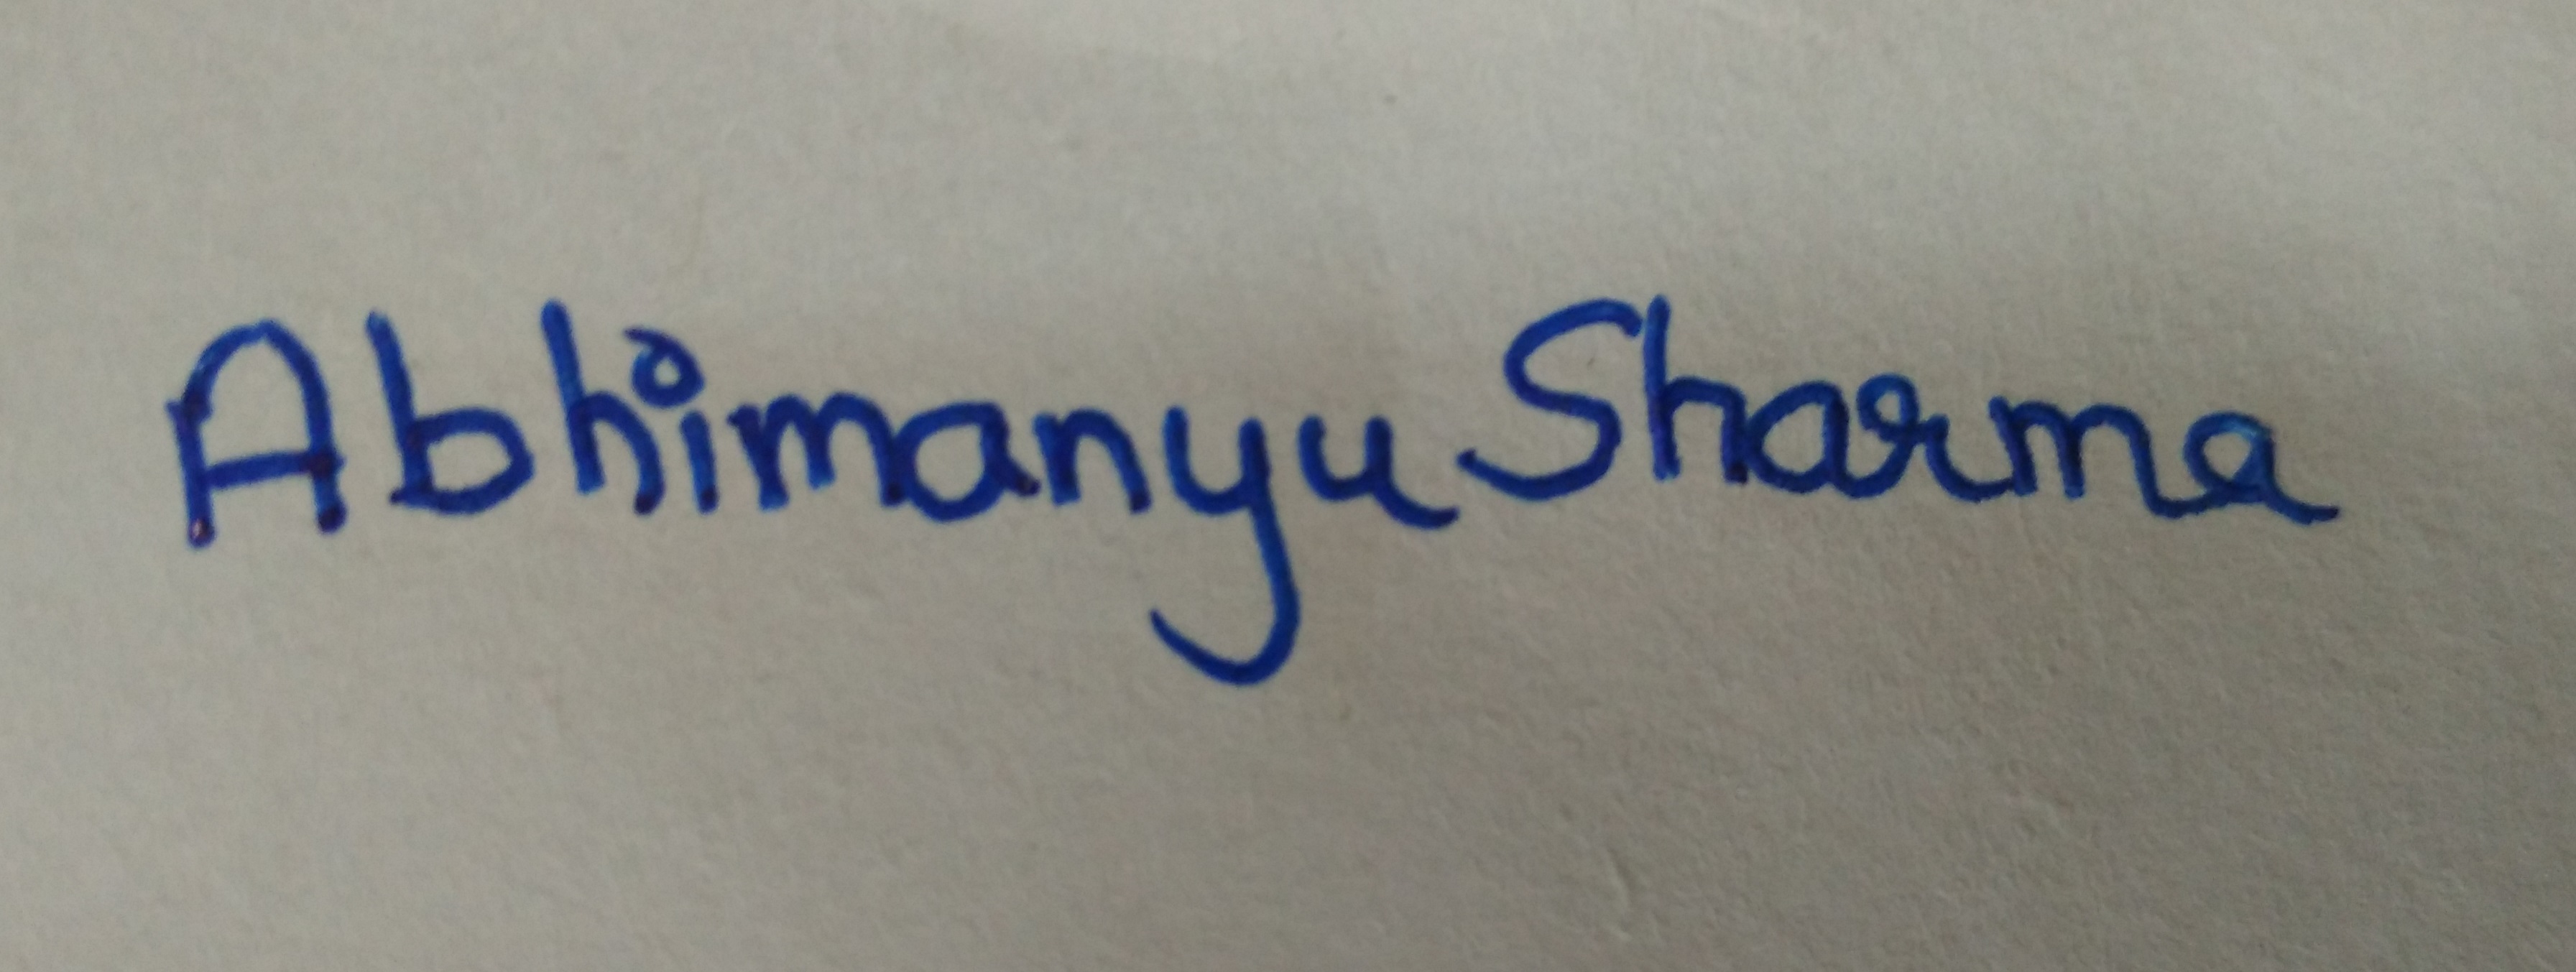 Abhimanyu Sharma